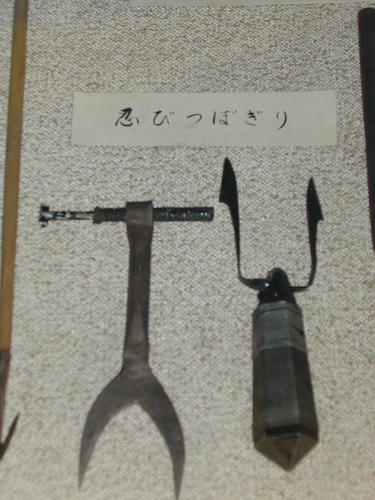 忍びつぼぎり